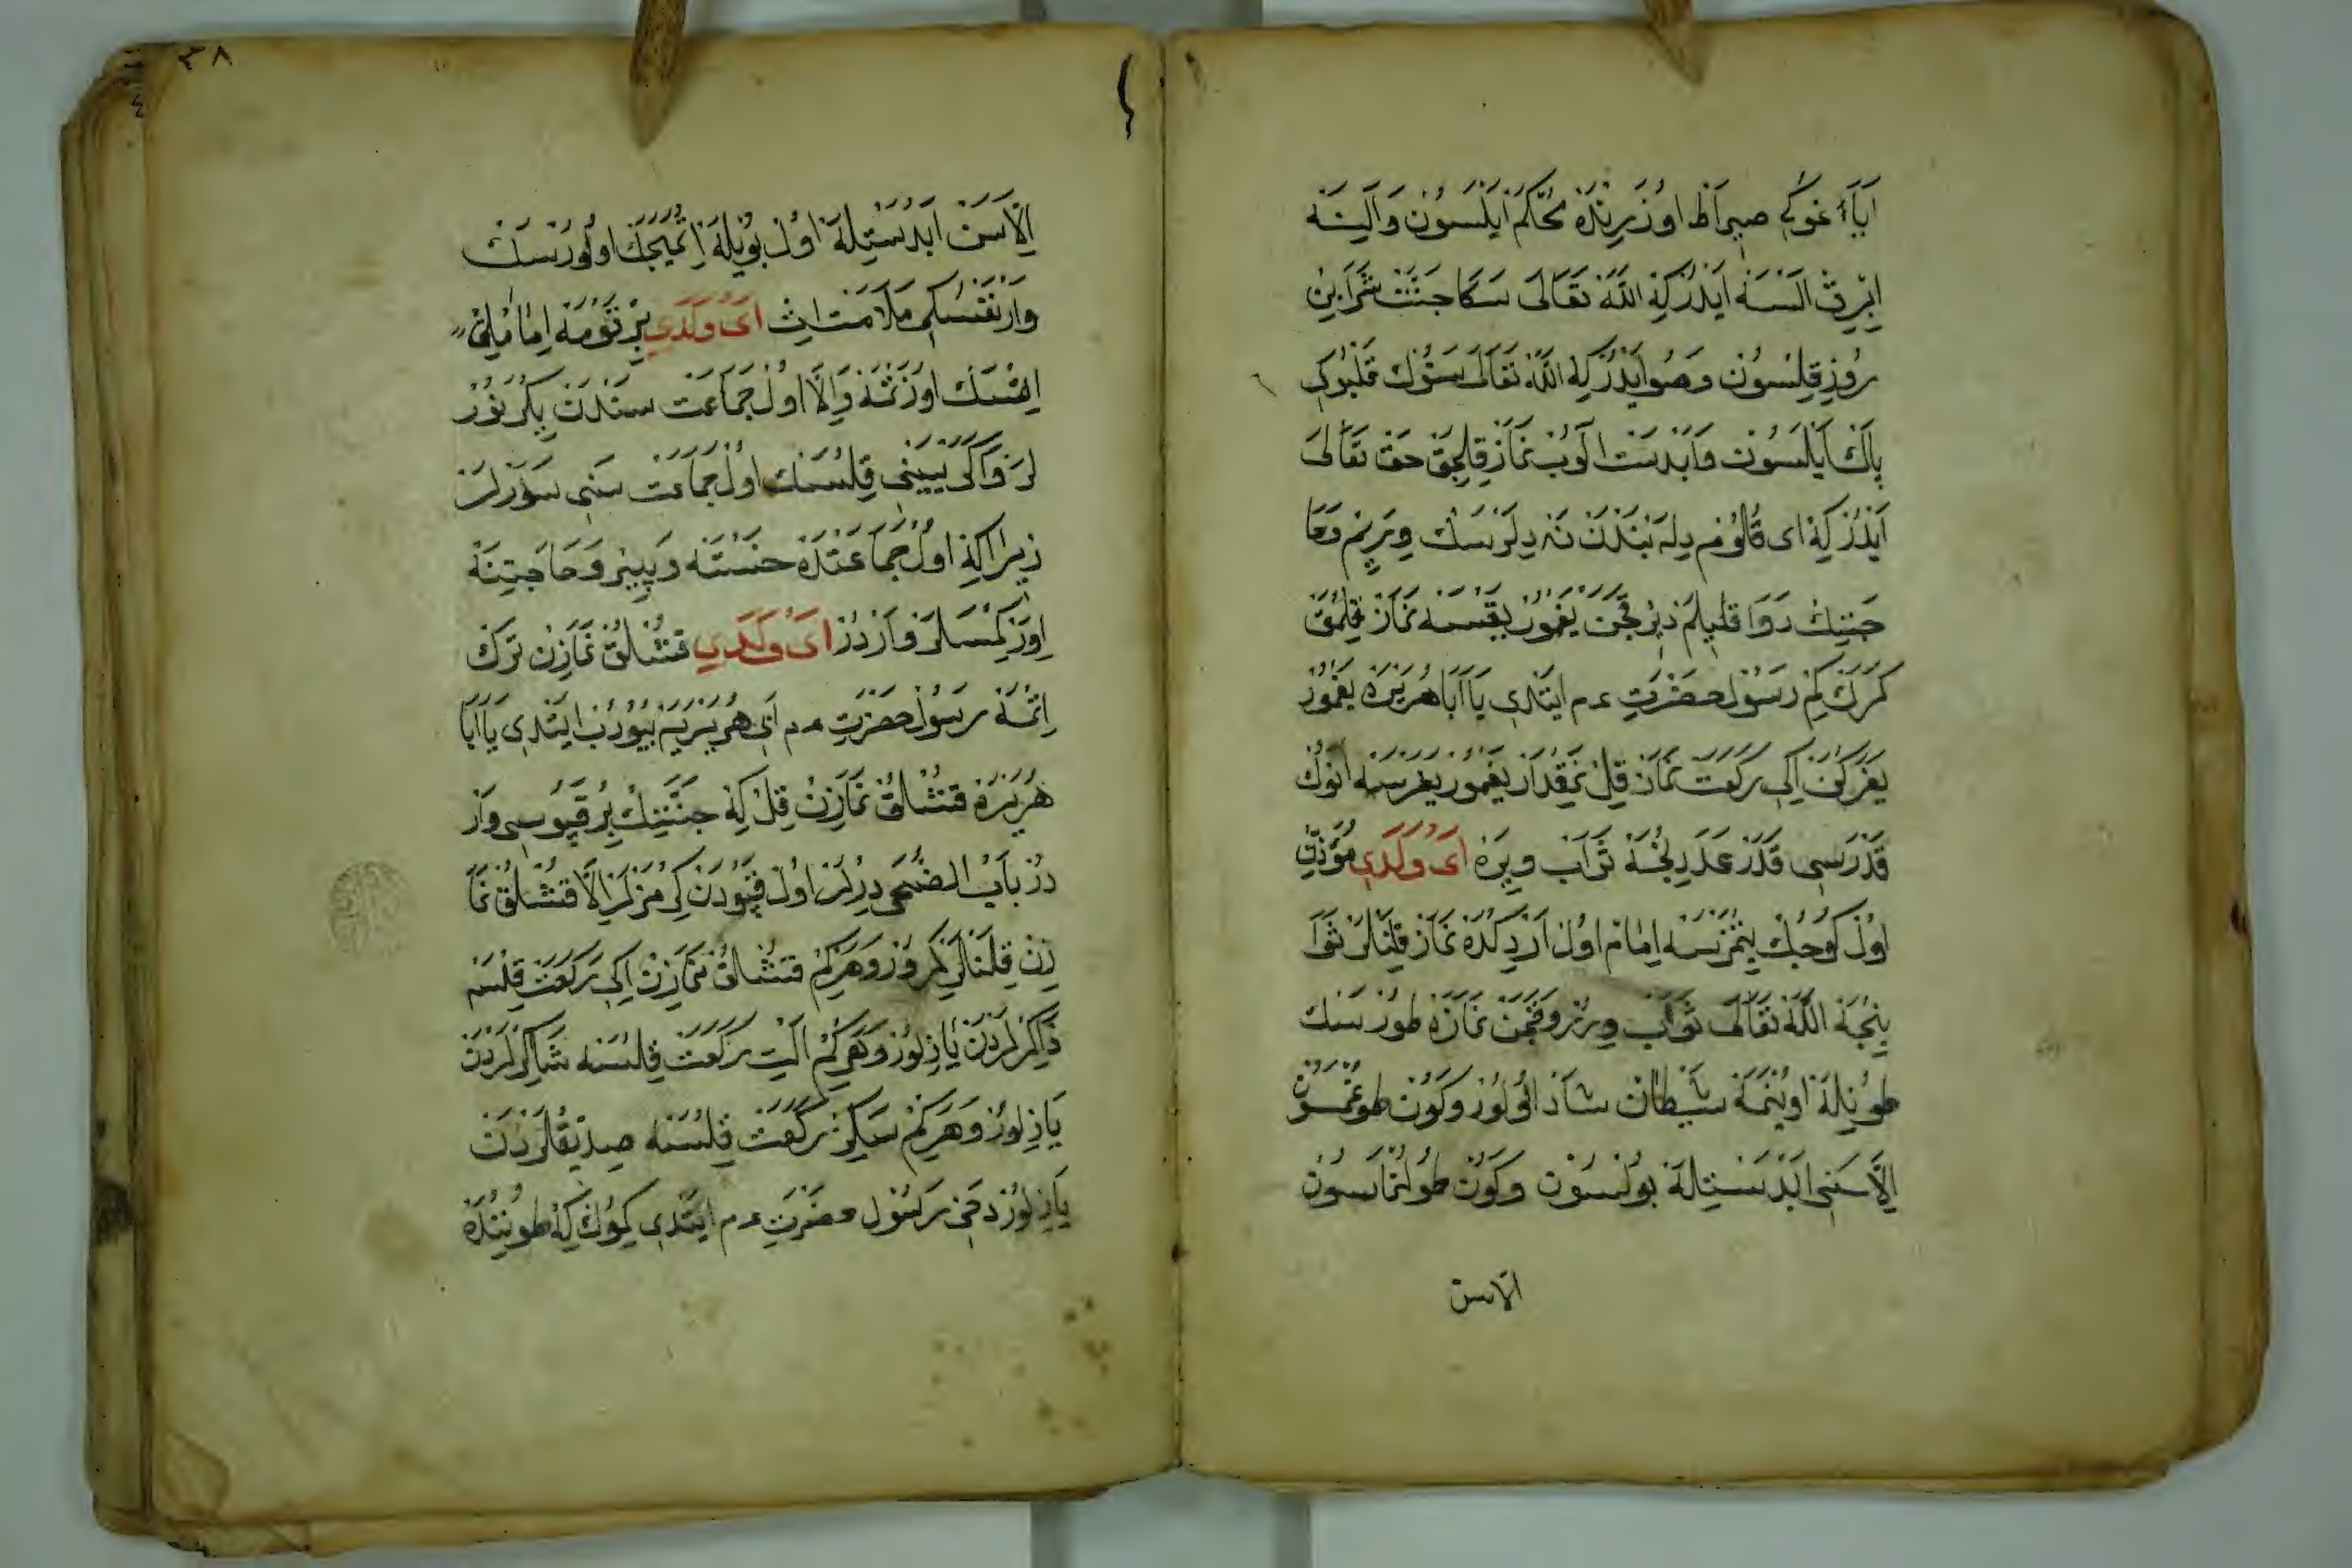 اَيَاءْ غُوكِ صِرَاطْ اوُزَرِنْدَهْ مُحْكَمْ اَيْلَسُونْ وَاَلِينَه
اِبْرِقْ اَلْسَه اَيْدُرْ كِه اللّٰه تَعَالَى سَكَا جَنَّتْ شَرَابِنْ
رُوزِ قِلْسُونْ وَصُو اَيْدُرْ كِه اللّٰه تَعَالَى سَنُوكْ قَلْبُوكِ
پَاكْ اَيْلَسُونْ وَاَبْدَسْتْ اَلُوبْ نَمَازْ قِلِجَقْ حَقْ تَعَالَى
اَيْدُرْ كِه اى قُلُومْ دِلَه بَنْدَنْ نَه دِلَرْسَكْ وِيرَيِمْ وَحَا
جَتِنِكْ رَوَا قَلَيِمْ دِيرْ قَچَنْ يَغْمُورْ يَغْسَه نَمَازْ قِلْمَقْ
كَرَكْ كِمْ رَسُولْ حَضْرَتِ عم ايتْدِى يَا اَبَا هُرَيْرَه يَغْمُورْ
يَغَرْكَنْ اِكِى رَكْعَتْ نَمَازْ قِلْ نَقِدَرْ يَغْمُورْ يَغَرْسَه اَنُوكْ
قَدَرْسِى قَدَرْ عَدَدِنْجَه ثَوَابْ وِيرَه اَىْ وَلَدِى مُؤَذِّنْ
اوُلْ كُوجُكْ يِتْمَزْسَه اِمَامْ اوُلْ اَرْدِكْدَه نَمَازْ قِلَنْلَرْ ثَوَا
بِنْجَه اللّٰه تَعَالَى ثَوَابْ وِيرُرْ وَقَچَنْ نَمَازَه طُورْسَكْ
طُونِلَه اوُينَمَه شَيْطَانْ شَادْ اوُلُورْ وَكُونْ طُوغْمَسُونْ
اِلَّا سَنِى اَبْدَسْتِلَه بُولْسُونْ وَكُونْ طُولُنْمَاسُونْ
الاسن
٣٨
اِلَّا سَنْ اَبْدَسْتِلَه اوُلْ بُويْلَه اِتْمَيِجَكْ اوُلُورْسَكْ
وَارْ نَفْسُكِى مَلَامَتْ اِتْ اَىْ وَلَدِى بِرْ قَوْمَه اِمَامْلِقْ
اِتْسَكْ اوُزَتْمَه وَاِلَّا اوُلْ جَمَاعَتْ سَنْدَنْ بِكَرْنُورْ
لَرْ وَاَكَرْ يَيْنِى قِلْسَكْ اوُلْ جَمَاعَتْ سَنِى سَوَرْلَرْ
زِيرَا كِه اوُلْ جَمَاعَتْدَه خَسْتَه وَپِيرْ وَحَاجَتِنَه
اِوَرْ كِمْسَلَرْ وَارْدُرْ اَىْ وَلَدِى قُشْلُقْ نَمَازِنْ تَرْكْ
اِتْمَه رَسُولْ حَضْرَتِ عم اَبِى هُرَيْرَيَه بُيُورُبْ ايتْدِى يَا اَبَا
هُرَيْرَه قُشْلُقْ نَمَازِنْ قِلْ كِه جَنَّتِكْ بِرْ قَپُوسِى وَارْ
دُرْ بَابُ الضُّحَى دِرْلَرْ اوُلْ قَپُودَنْ كِرْمَزْلَرْ اِلَّا قُشْلُقْ نَمَا
زِنْ قِلَنْلَرْ كِرُرْ وَهَرْ كِمْ قُشْلُقْ نَمَازِنْ اِكِى رَكْعَتْ قِلْسَه
ذَاكِرْلَرْدَنْ يَازِلُورْ وَهَرْ كِمْ اَلْتِى رَكْعَتْ قِلْسَه شَاكِرْلَرْدَنْ
يَازِلُورْ وَهَرْ كِمْ سَكِزْ رَكْعَتْ قِلْسَه صِدِّيقْلَرْدَنْ
يَازِلُورْ دَخِى رَسُولْ حَضْرَتِ عم ايتْدِى كُوكْ كِه طُونِنْدَه